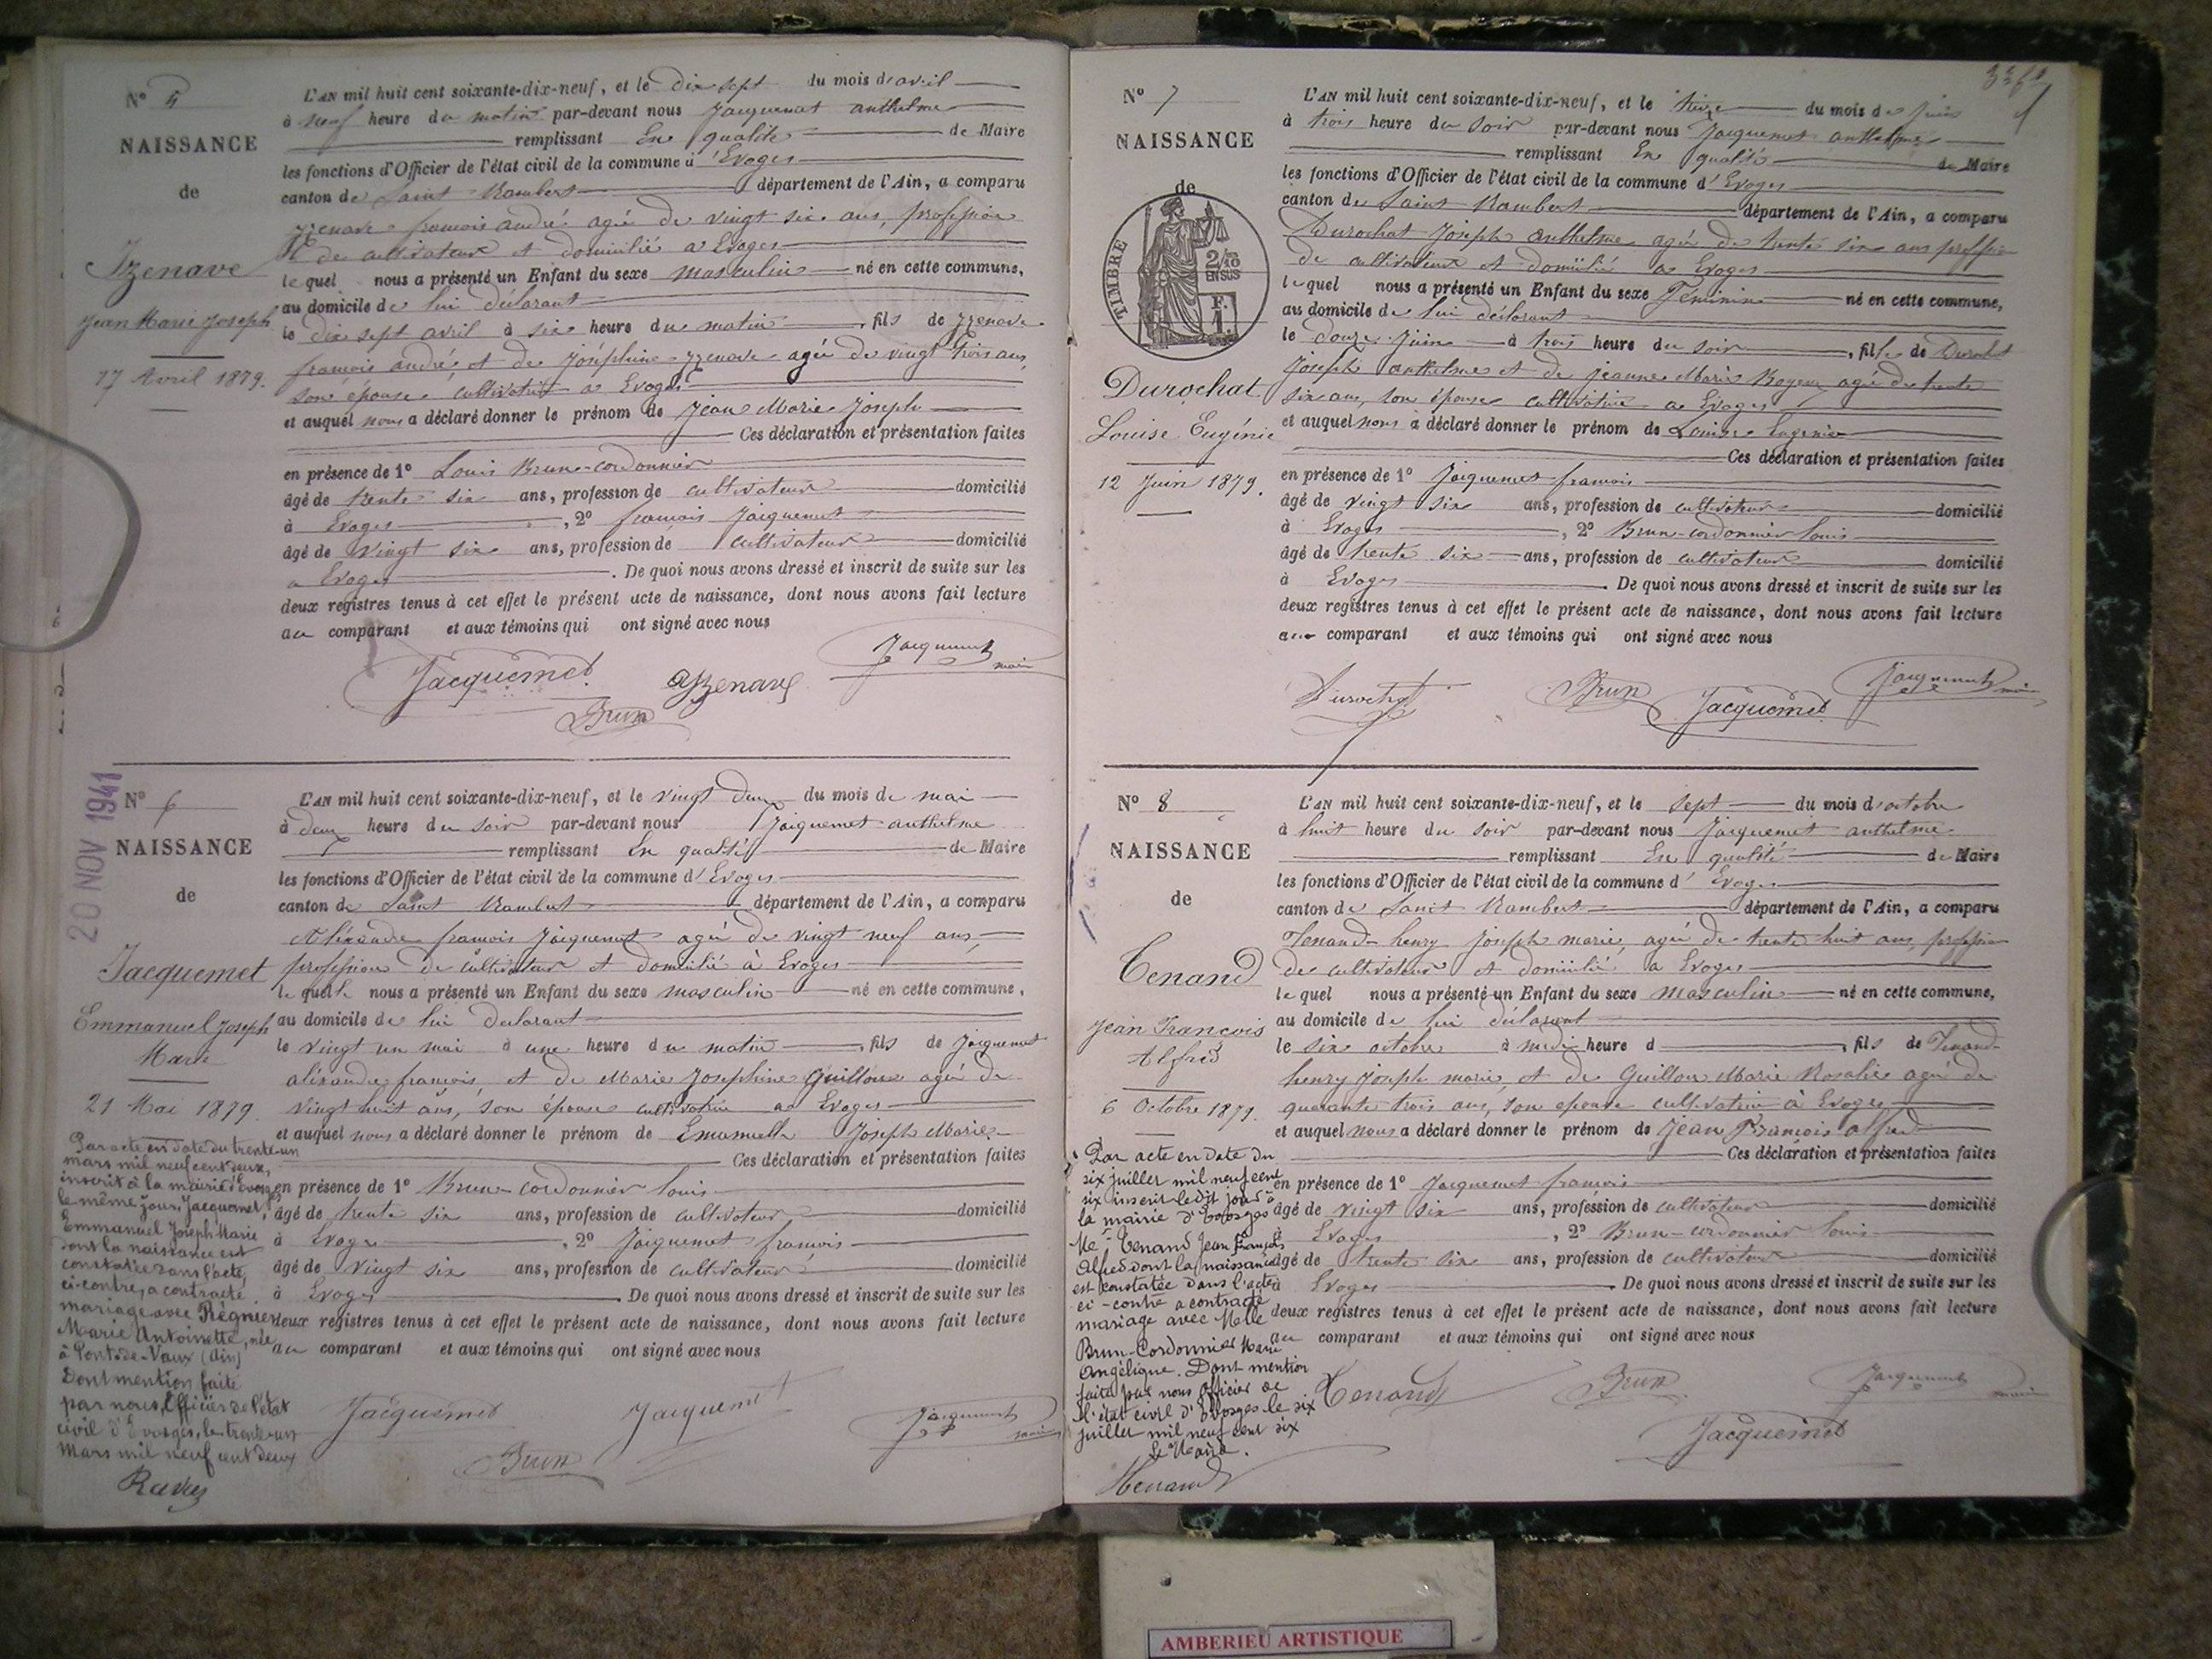 Nº 5
NAISSANCE
de
Izenave
Jean Marie Joseph
17 Avril 1879.
L'AN mil huit cent soixante-dix-neuf, et le dix sept du mois d'avril
à neuf heure du matin par-devant nous Jacquemet anthelme
remplissant En qualité de Maire
les fonctions d'Officier de l'état civil de la commune d'Evoges
canton de Saint Rambert département de l'Ain, a comparu
Yzenave françois andré agée de vingt six ans, profession
de cultivateur et domicilié a Evoges
lequel nous a présenté un Enfant du sexe masculin né en cette commune,
au domicile de lui déclarant
le dix sept avril à six heure du matin, fils de Yzenave
françois andré et de Joséphine Yzenave agée de vingt trois ans,
son épouse cultivatrice a Evoges
et auquel nous a déclaré donner le prénom de Jean Marie Joseph
Ces déclaration et présentation faites
en présence de 1º Louis Brun-cordonnier
âgé de trente six ans, profession de cultivateur domicilié
à Evoges, 2º françois Jacquemet
âgé de vingt six ans, profession de cultivateur domicilié
a Evoges. De quoi nous avons dressé et inscrit de suite sur les
deux registres tenus à cet effet le présent acte de naissance, dont nous avons fait lecture
au comparant et aux témoins qui ont signé avec nous
Jacquemet maire
Jacquemet
Brun
20 NOV 1941
Nº 6
NAISSANCE
de
Jacquemet
Emmanuel Joseph
Marie
21 Mai 1879.
Par acte en date du trente-un
mars mil neuf cent deux,
inscrit à la mairie d'Evosges
le même jour, Jacquemet
Emmanuel Joseph Marie
dont la naissance est
constatée dans l'acte
ci-contre, a contracté
mariage avec Régnier
Marie Antoinette, née
à Pont-de-Vaux (Ain)
Dont mention faite
par nous, Officier de l'état
civil d'Evosges, le trente-un
Mars mil neuf cent deux
L'AN mil huit cent soixante-dix-neuf, et le vingt deux du mois de mai
à deux heure du soir par-devant nous Jacquemet anthelme
remplissant En qualité de Maire
les fonctions d'Officier de l'état civil de la commune d'Evoges
canton de Saint Rambert département de l'Ain, a comparu
Aléxandre françois Jacquemet agée de vingt neuf ans
profession de cultivateur et domicilié à Evoges
nous a présenté un Enfant du sexe masculin né en cette commune,
au domicile de lui declarant
le vingt un mai à une heure du matin, fils de Jacquemet
aléxandre françois, et de Marie Josephine Guillon agée de
vingt huit ans, son épouse cultivatrice a Evoges
et auquel nous a déclaré donner le prénom de Emanuelle Joseph Marie
Ces déclaration et présentation faites
en présence de 1º Brun-cordonnier louis
âgé de trente six ans, profession de cultivateur domicilié
à Evoges, 2º Jacquemet françois
âgé de vingt six ans, profession de cultivateur domicilié
à Evoges. De quoi nous avons dressé et inscrit de suite sur les
deux registres tenus à cet effet le présent acte de naissance, dont nous avons fait lecture
au comparant et aux témoins qui ont signé avec nous
Jacquemet Jacquemet Jacquemet maire
Brun
Nº 7
NAISSANCE
de
TIMBRE
2/10
EN SUS
F.
1.
Durochat
Louise Eugénie
12 Juin 1879.
L'AN mil huit cent soixante-dix-neuf, et le treize du mois de juin
à trois heure du soir par-devant nous Jacquemet anthelme
remplissant En qualité de Maire
les fonctions d'Officier de l'état civil de la commune d'Evoges
canton de Saint Rambert département de l'Ain, a comparu
Durochat Joseph anthelme agée de trente six ans profession
de cultivateur et domicilié a Evoges
lequel nous a présenté un Enfant du sexe Féminin né en cette commune,
au domicile de lui déclarant
le douze juin à trois heure du soir, fille de
Joseph anthelme et de jeanne Marie agée de trente
six ans, son épouse cultivatrice a Evoges
et auquel nous a déclaré donner le prénom de Louise Eugenie
Ces déclaration et présentation faites
en présence de 1º Jacquemet françois
âgé de vingt six ans, profession de cultivateur domicilié
à Evoges, 2º Brun-cordonnier louis
âgé de trente six ans, profession de cultivateur domicilié
à Evoges. De quoi nous avons dressé et inscrit de suite sur les
deux registres tenus à cet effet le présent acte de naissance, dont nous avons fait lecture
au comparant et aux témoins qui ont signé avec nous
Durochat Brun Jacquemet Jacquemet maire
Nº 8
NAISSANCE
de
Tenand
Jean François
Alfred
6 Octobre 1879.
Par acte en date du
six juillet mil neuf cent
six inscrit ledit jour à
la mairie d'Evosges
Tenand Jean François
Alfred dont la naissance
est constatée dans l'acte
ci-contre a contracté
mariage avec Melle
Brun-Cordonnier Marie
Angélique. Dont mention
faite par nous officier de
l'état civil d'Evosges le six
juillet mil neuf cent six
Le Maire.
Tenand
L'AN mil huit cent soixante-dix-neuf, et le sept du mois d'octobre
à huit heure du soir par-devant nous Jacquemet anthelme
remplissant En qualité de Maire
les fonctions d'Officier de l'état civil de la commune d'Evoges
canton de Saint Rambert département de l'Ain, a comparu
Tenand henry Joseph marie, agée de trente huit ans, profession
de cultivateur et domicilié a Evoges
lequel nous a présenté un Enfant du sexe masculin né en cette commune,
au domicile de lui déclarant
le six octobre à midi heure d, fils de Tenand
henry joseph marie, et de Guillon Marie Rosalie agée de
quarante trois ans, son epouse cultivatrice à Evoges
et auquel nous a déclaré donner le prénom de Jean François alfred
Ces déclaration et présentation faites
en présence de 1º Jacquemet françois
âgé de vingt six ans, profession de cultivateur domicilié
Evoges, 2º Brun-cordonnier louis
âgé de trente six ans, profession de cultivateur domicilié
à Evoges. De quoi nous avons dressé et inscrit de suite sur les
deux registres tenus à cet effet le présent acte de naissance, dont nous avons fait lecture
au comparant et aux témoins qui ont signé avec nous
Tenand Brun Jacquemet maire
Jacquemet
AMBERIEU ARTISTIQUE